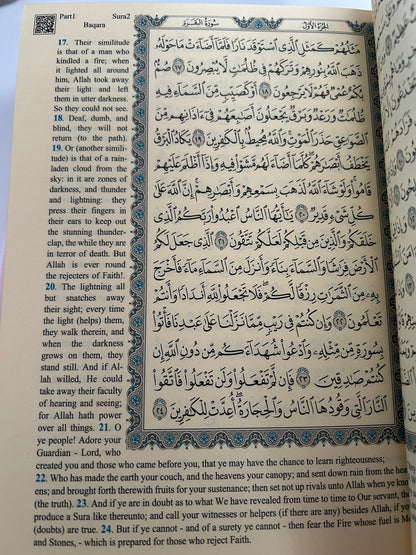 Part1 Sura2
Baqara
الجزء الأول
سورة البقرة
17. Their similitude
is that of a man who
kindled a fire; when
it lighted all around
him, Allah took away
their light and left
them in utter darkness.
So they could not see.
18. Deaf, dumb, and
blind, they will not
return (to the path).
19. Or (another simili-
tude) is that of a rain-
laden cloud from the
sky: in it are zones of
darkness, and thunder
and lightning: they
press their fingers in
their ears to keep out
the stunning thunder-
clap, the while they are
in terror of death. But
Allah is ever round
the rejecters of Faith!.
20. The lightning all
but snatches away
their sight; every time
the light (helps) them,
they walk therein, and
when the darkness
grows on them, they
stand still. And if Al-
lah willed, He could
take away their faculty
of hearing and seeing;
for Allah hath power
over all things. 21. O
ye people! Adore your
Guardian - Lord, who
created you and those who came before you, that ye may have the chance to learn righteousness;
22. Who has made the earth your couch, and the heavens your canopy; and sent down rain from the
ens; and brought forth therewith fruits for your sustenance; then set not up rivals unto Allah when ye kn
(the truth). 23. And if ye are in doubt as to what We have revealed from time to time to Our servant, th
produce a Sura like thereunto; and call your witnesses or helpers (if there are any) besides Allah, if yo
(doubts) are true. 24. But if ye cannot - and of a surety ye cannot - then fear the Fire whose fuel is M
and Stones, - which is prepared for those who reject Faith.
مَثَلُهُمْ كَمَثَلِ ٱلَّذِى ٱسْتَوْقَدَ نَارًا فَلَمَّآ أَضَآءَتْ مَا حَوْلَهُۥ
ذَهَبَ ٱللَّهُ بِنُورِهِمْ وَتَرَكَهُمْ فِى ظُلُمَٰتٍ لَّا يُبْصِرُونَ ١٧
صُمٌّۢ بُكْمٌ عُمْىٌ فَهُمْ لَا يَرْجِعُونَ ١٨ أَوْ كَصَيِّبٍ مِّنَ ٱلسَّمَآءِ فِيهِ
ظُلُمَٰتٌ وَرَعْدٌ وَبَرْقٌ يَجْعَلُونَ أَصَٰبِعَهُمْ فِىٓ ءَاذَانِهِم مِّنَ
ٱلصَّوَٰعِقِ حَذَرَ ٱلْمَوْتِ وَٱللَّهُ مُحِيطٌۢ بِٱلْكَٰفِرِينَ ١٩ يَكَادُ ٱلْبَرْقُ
يَخْطَفُ أَبْصَٰرَهُمْ كُلَّمَآ أَضَآءَ لَهُم مَّشَوْا۟ فِيهِ وَإِذَآ أَظْلَمَ عَلَيْهِمْ
قَامُوا۟ وَلَوْ شَآءَ ٱللَّهُ لَذَهَبَ بِسَمْعِهِمْ وَأَبْصَٰرِهِمْ إِنَّ ٱللَّهَ عَلَىٰ
كُلِّ شَىْءٍ قَدِيرٌ ٢٠ يَٰٓأَيُّهَا ٱلنَّاسُ ٱعْبُدُوا۟ رَبَّكُمُ ٱلَّذِى
خَلَقَكُمْ وَٱلَّذِينَ مِن قَبْلِكُمْ لَعَلَّكُمْ تَتَّقُونَ ٢١ ٱلَّذِى جَعَلَ لَكُمُ
ٱلْأَرْضَ فِرَٰشًا وَٱلسَّمَآءَ بِنَآءً وَأَنزَلَ مِنَ ٱلسَّمَآءِ مَآءً فَأَخْرَجَ
بِهِۦ مِنَ ٱلثَّمَرَٰتِ رِزْقًا لَّكُمْ فَلَا تَجْعَلُوا۟ لِلَّهِ أَندَادًا وَأَنتُمْ
تَعْلَمُونَ ٢٢ وَإِن كُنتُمْ فِى رَيْبٍ مِّمَّا نَزَّلْنَا عَلَىٰ عَبْدِنَا فَأْتُوا۟
بِسُورَةٍ مِّن مِّثْلِهِۦ وَٱدْعُوا۟ شُهَدَآءَكُم مِّن دُونِ ٱللَّهِ إِن
كُنتُمْ صَٰدِقِينَ ٢٣ فَإِن لَّمْ تَفْعَلُوا۟ وَلَن تَفْعَلُوا۟ فَٱتَّقُوا۟
ٱلنَّارَ ٱلَّتِى وَقُودُهَا ٱلنَّاسُ وَٱلْحِجَارَةُ أُعِدَّتْ لِلْكَٰفِرِينَ ٢٤